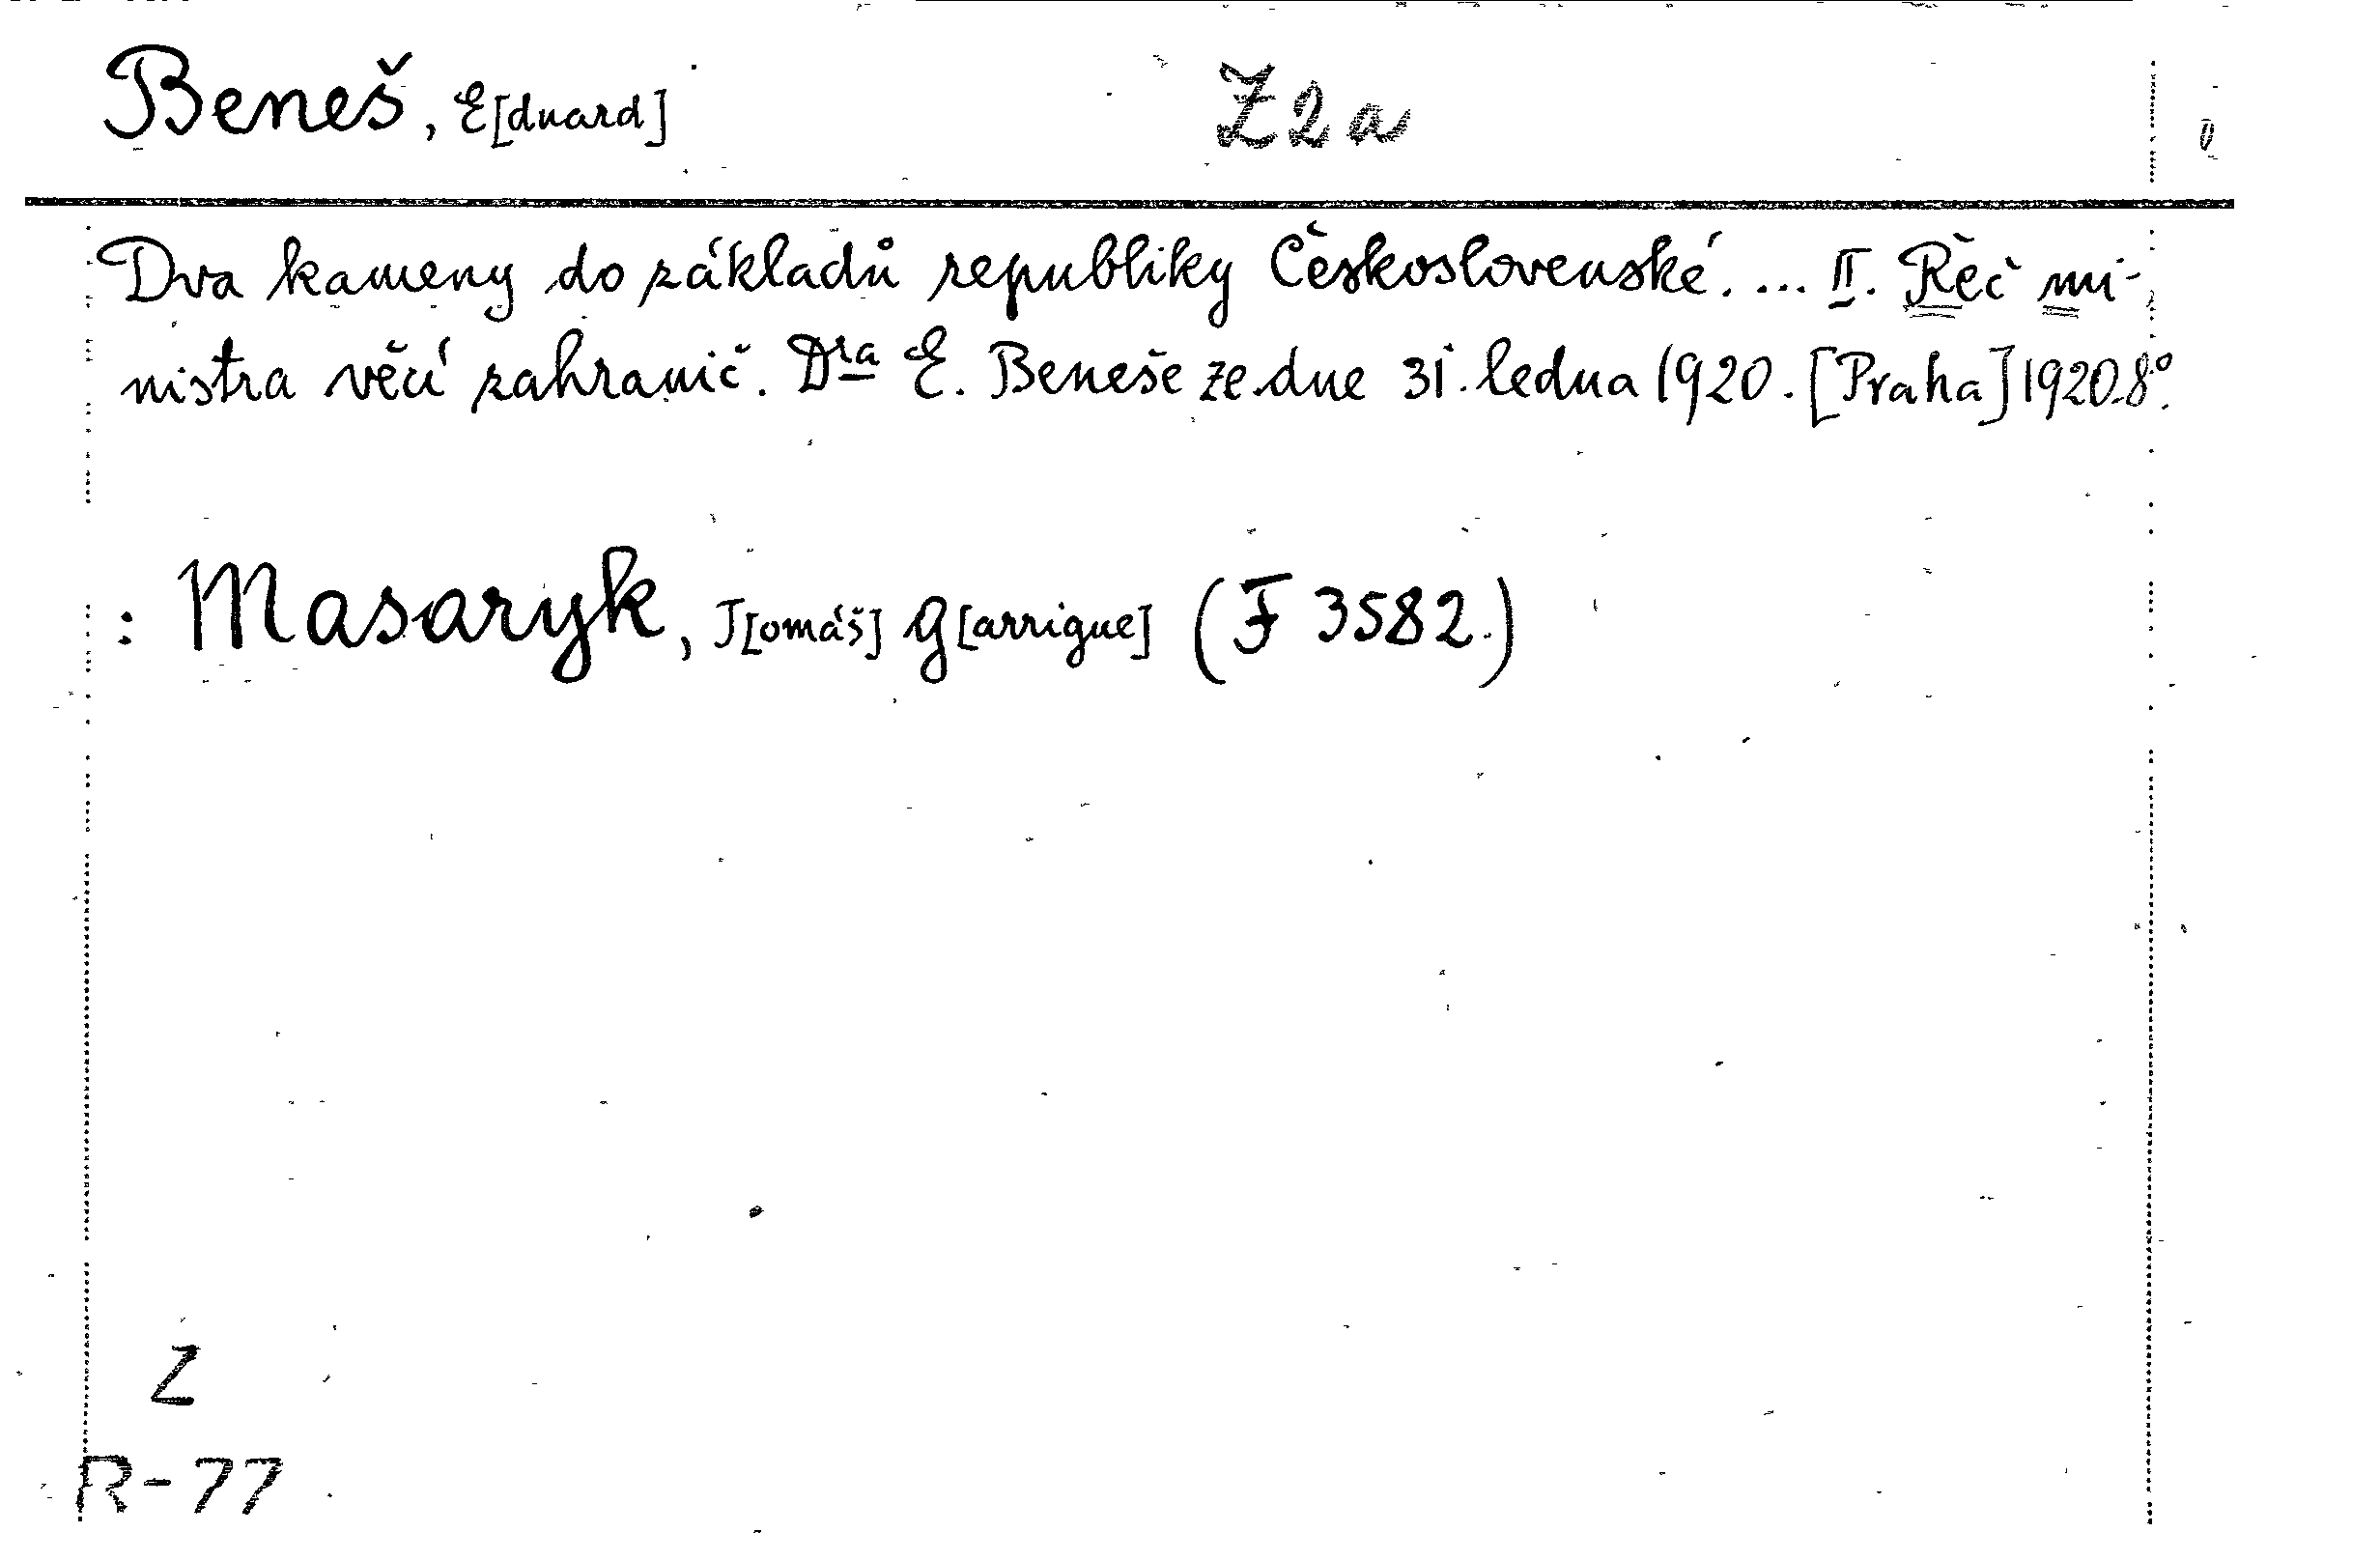 Beneš, E[duard] Z2a
Dva kameny do základů republiky Československé. ... II. Řeč mi-
nistra věcí zahranič. Dra E. Beneše ze dne 31. ledna 1920. [Praha] 1920. 8°.
: Masaryk, T[omáš] G[arrigue] (F 3582.)
Z
R-77